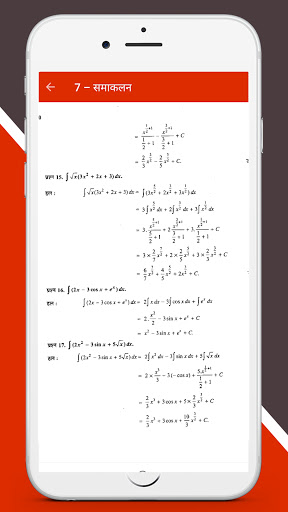 7 – समाकलन
= x^(1/2+1)/(1/2+1) − x^(3/2+1)/(3/2+1) + C
= 2/3 x^(3/2) − 2/5 x^(5/2) + C.
प्रश्न 15. ∫√x(3x² + 2x + 3) dx.
हल : ∫√x(3x² + 2x + 3) dx = ∫(3x^(5/2) + 2x^(3/2) + 3x^(1/2)) dx
= 3∫x^(5/2) dx + 2∫x^(3/2) dx + 3∫x^(1/2) dx
= 3 × 2/7 x^(7/2) + 2 × 2/5 x^(5/2) + 3 × 2/3 x^(3/2) + C
= 6/7 x^(7/2) + 4/5 x^(5/2) + 2x^(3/2) + C.
प्रश्न 16. ∫(2x − 3 cos x + e^x) dx.
हल : ∫(2x − 3 cos x + e^x) dx = 2∫x dx − 3∫cos x dx + ∫e^x dx
= 2. x²/2 − 3 sin x + e^x + C
= x² − 3 sin x + e^x + C.
प्रश्न 17. ∫(2x² − 3 sin x + 5√x) dx.
हल : ∫(2x² − 3 sin x + 5√x) dx = 2∫x² dx − 3∫sin x dx + 5∫√x dx
= 2 × x³/3 − 3(−cos x) + 5.x^(1/2+1)/(1/2+1) + C
= 2/3 x³ + 3 cos x + 5 × 2/3 x^(3/2) + C
= 2/3 x³ + 3 cos x + 10/3 x^(3/2) + C.